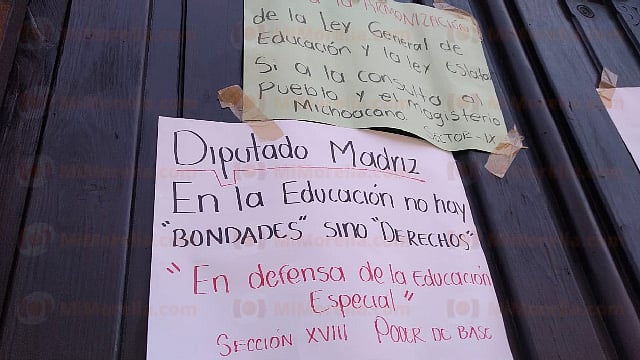 a la ARMONIZACIÓN
de la Ley General de
Educación y la ley Estatal
Si a la consulta al
Pueblo y el magisterio
Michoacano.
SECTOR-IX
Diputado Madriz
En la Educación no hay
"BONDADES" sino "DERECHOS"
"En defensa de la Educación
Especial"
SECCIÓN XVIII PODER DE BASE
MiMorelia.com